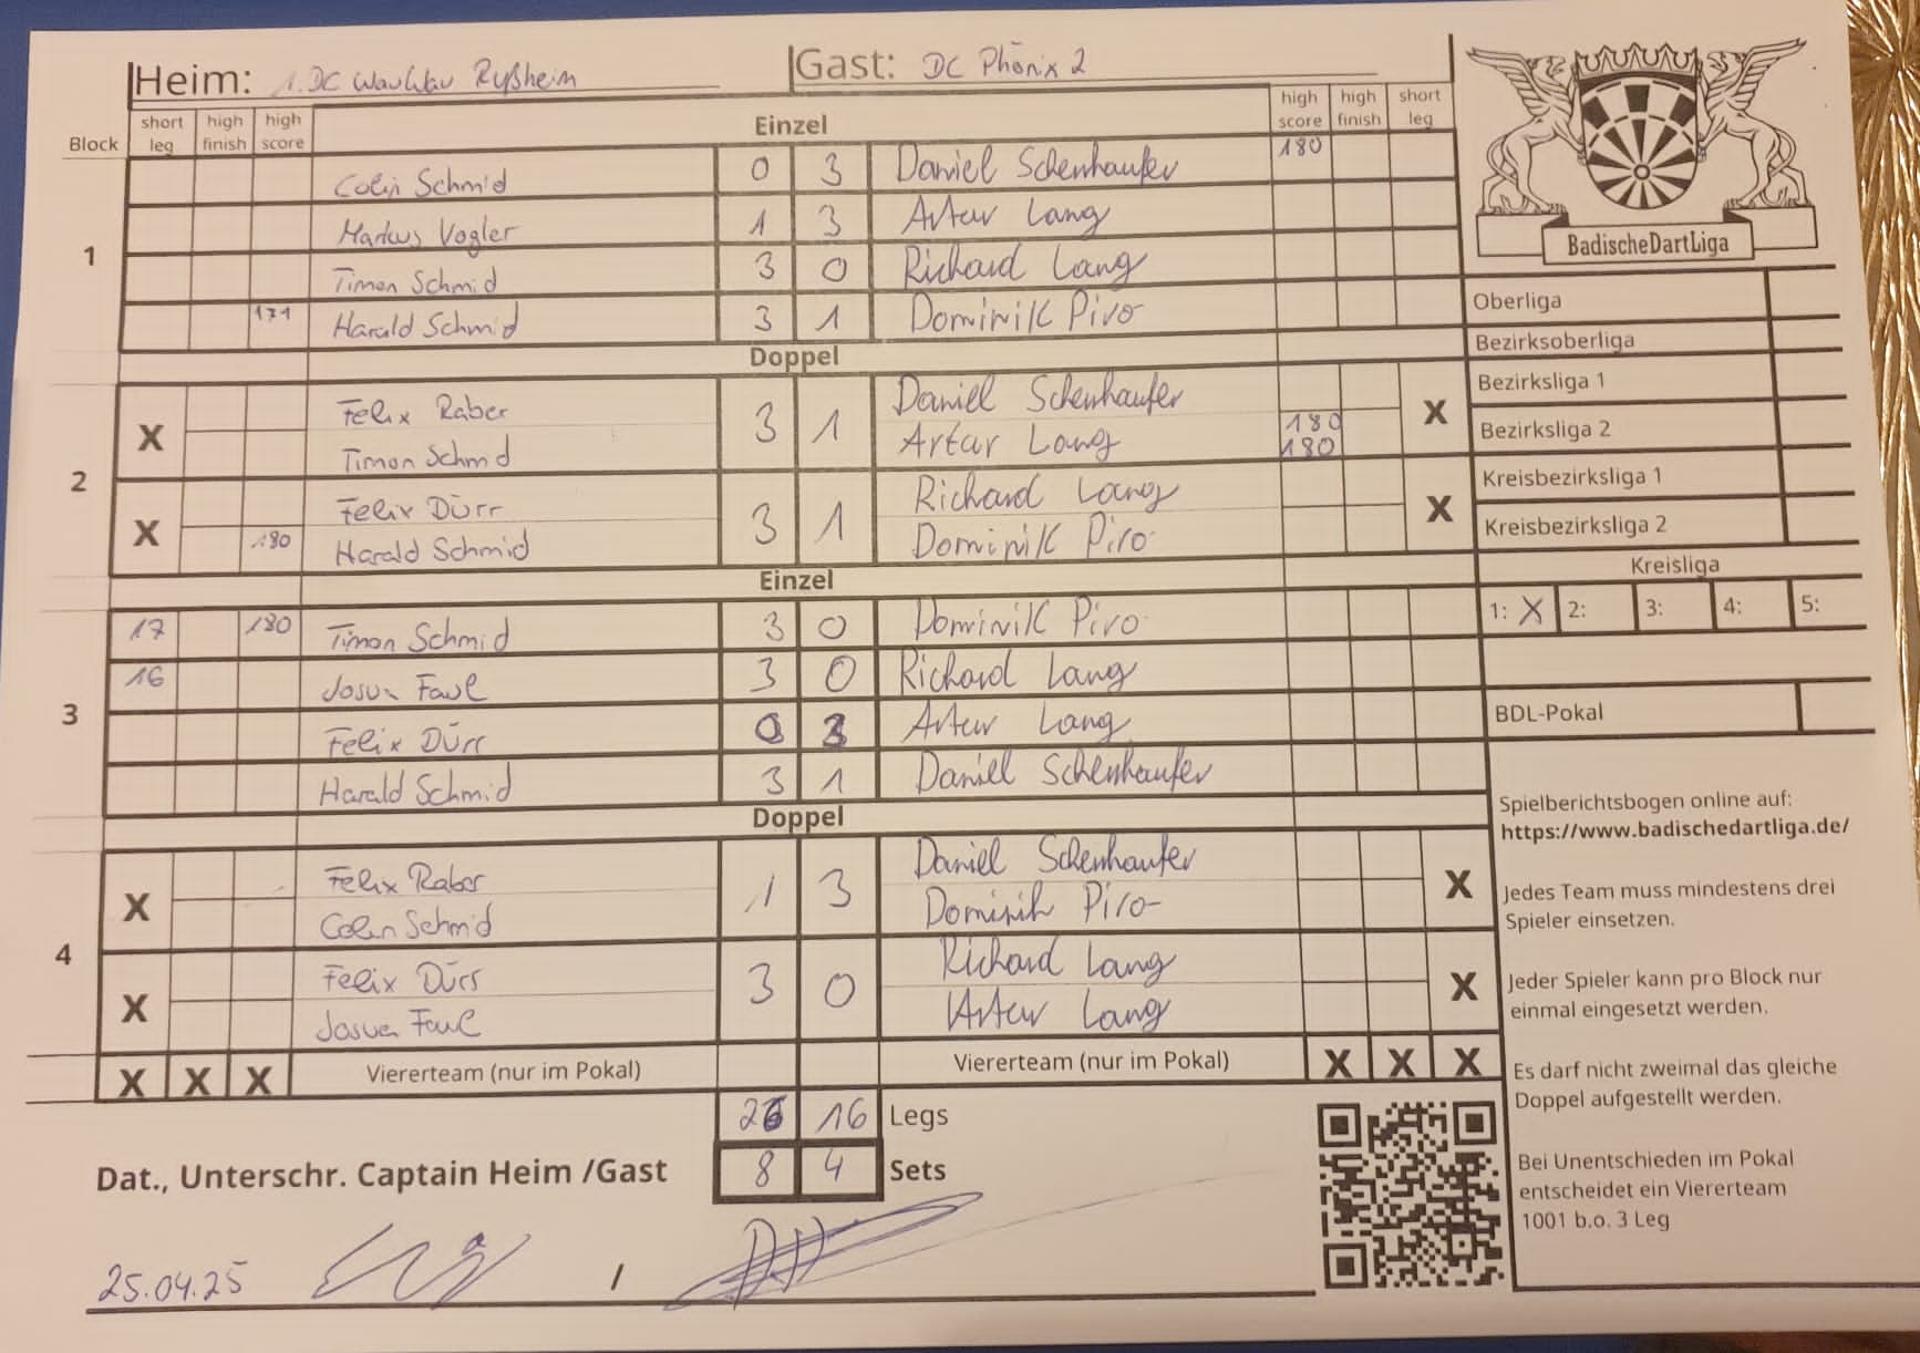 Heim: 1. DC WauWau Rußheim Gast: DC Phönix 2
Block short leg high finish high score Einzel high score high finish short leg
1
Colin Schmid 0 3 Daniel Schenhaufer 180
Markus Vogler 1 3 Artur Lang
Timon Schmid 3 0 Richard Lang
171 Harald Schmid 3 1 Dominik Piro
Doppel
2
X Felix Raber 3 1 Daniel Schenhaufer X
Timon Schmid Artur Lang 180 180
X Felix Dürr 3 1 Richard Lang X
180 Harald Schmid Dominik Piro
Einzel
3
17 180 Timon Schmid 3 0 Dominik Piro
16 Josua Faul 3 0 Richard Lang
Felix Dürr 0 3 Artur Lang
Harald Schmid 3 1 Daniel Schenhaufer
Doppel
4
X Felix Raber 1 3 Daniel Schenhaufer X
Colin Schmid Dominik Piro
X Felix Dürr 3 0 Richard Lang X
Josua Faul Artur Lang
X X X Viererteam (nur im Pokal) Viererteam (nur im Pokal) X X X
26 16 Legs
8 4 Sets
Dat., Unterschr. Captain Heim /Gast
25.04.25 /
BadischeDartLiga
Oberliga
Bezirksoberliga
Bezirksliga 1
Bezirksliga 2
Kreisbezirksliga 1
Kreisbezirksliga 2
Kreisliga
1: X 2: 3: 4: 5:
BDL-Pokal
Spielberichtsbogen online auf:
https://www.badischedartliga.de/
Jedes Team muss mindestens drei
Spieler einsetzen.
Jeder Spieler kann pro Block nur
einmal eingesetzt werden.
Es darf nicht zweimal das gleiche
Doppel aufgestellt werden.
Bei Unentschieden im Pokal
entscheidet ein Viererteam
1001 b.o. 3 Leg